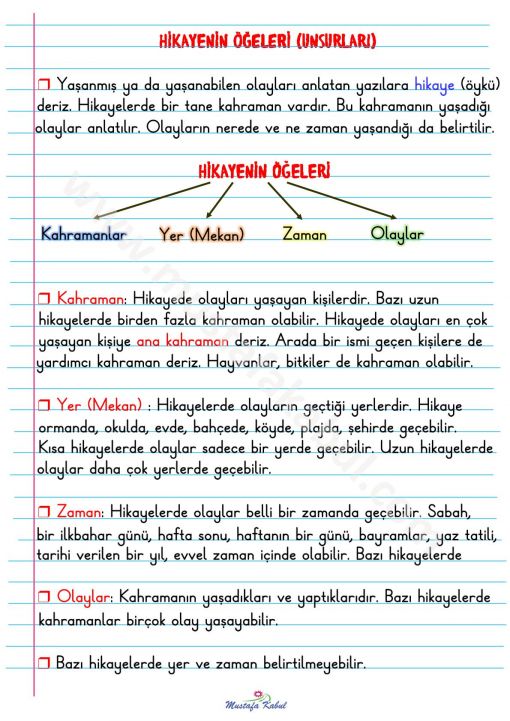 HİKAYENİN ÖĞELERİ (UNSURLARI)
❒ Yaşanmış ya da yaşanabilen olayları anlatan yazılara hikaye (öykü)
deriz. Hikayelerde bir tane kahraman vardır. Bu kahramanın yaşadığı
olaylar anlatılır. Olayların nerede ve ne zaman yaşandığı da belirtilir.
HİKAYENİN ÖĞELERİ
Kahramanlar Yer (Mekan) Zaman Olaylar
❒ Kahraman: Hikayede olayları yaşayan kişilerdir. Bazı uzun
hikayelerde birden fazla kahraman olabilir. Hikayede olayları en çok
yaşayan kişiye ana kahraman deriz. Arada bir ismi geçen kişilere de
yardımcı kahraman deriz. Hayvanlar, bitkiler de kahraman olabilir.
❒ Yer (Mekan) : Hikayelerde olayların geçtiği yerlerdir. Hikaye
ormanda, okulda, evde, bahçede, köyde, plajda, şehirde geçebilir.
Kısa hikayelerde olaylar sadece bir yerde geçebilir. Uzun hikayelerde
olaylar daha çok yerlerde geçebilir.
❒ Zaman: Hikayelerde olaylar belli bir zamanda geçebilir. Sabah,
bir ilkbahar günü, hafta sonu, haftanın bir günü, bayramlar, yaz tatili,
tarihi verilen bir yıl, evvel zaman içinde olabilir. Bazı hikayelerde
❒ Olaylar: Kahramanın yaşadıkları ve yaptıklarıdır. Bazı hikayelerde
kahramanlar birçok olay yaşayabilir.
❒ Bazı hikayelerde yer ve zaman belirtilmeyebilir.
Mustafa Kabul
www.mustafakabul.com